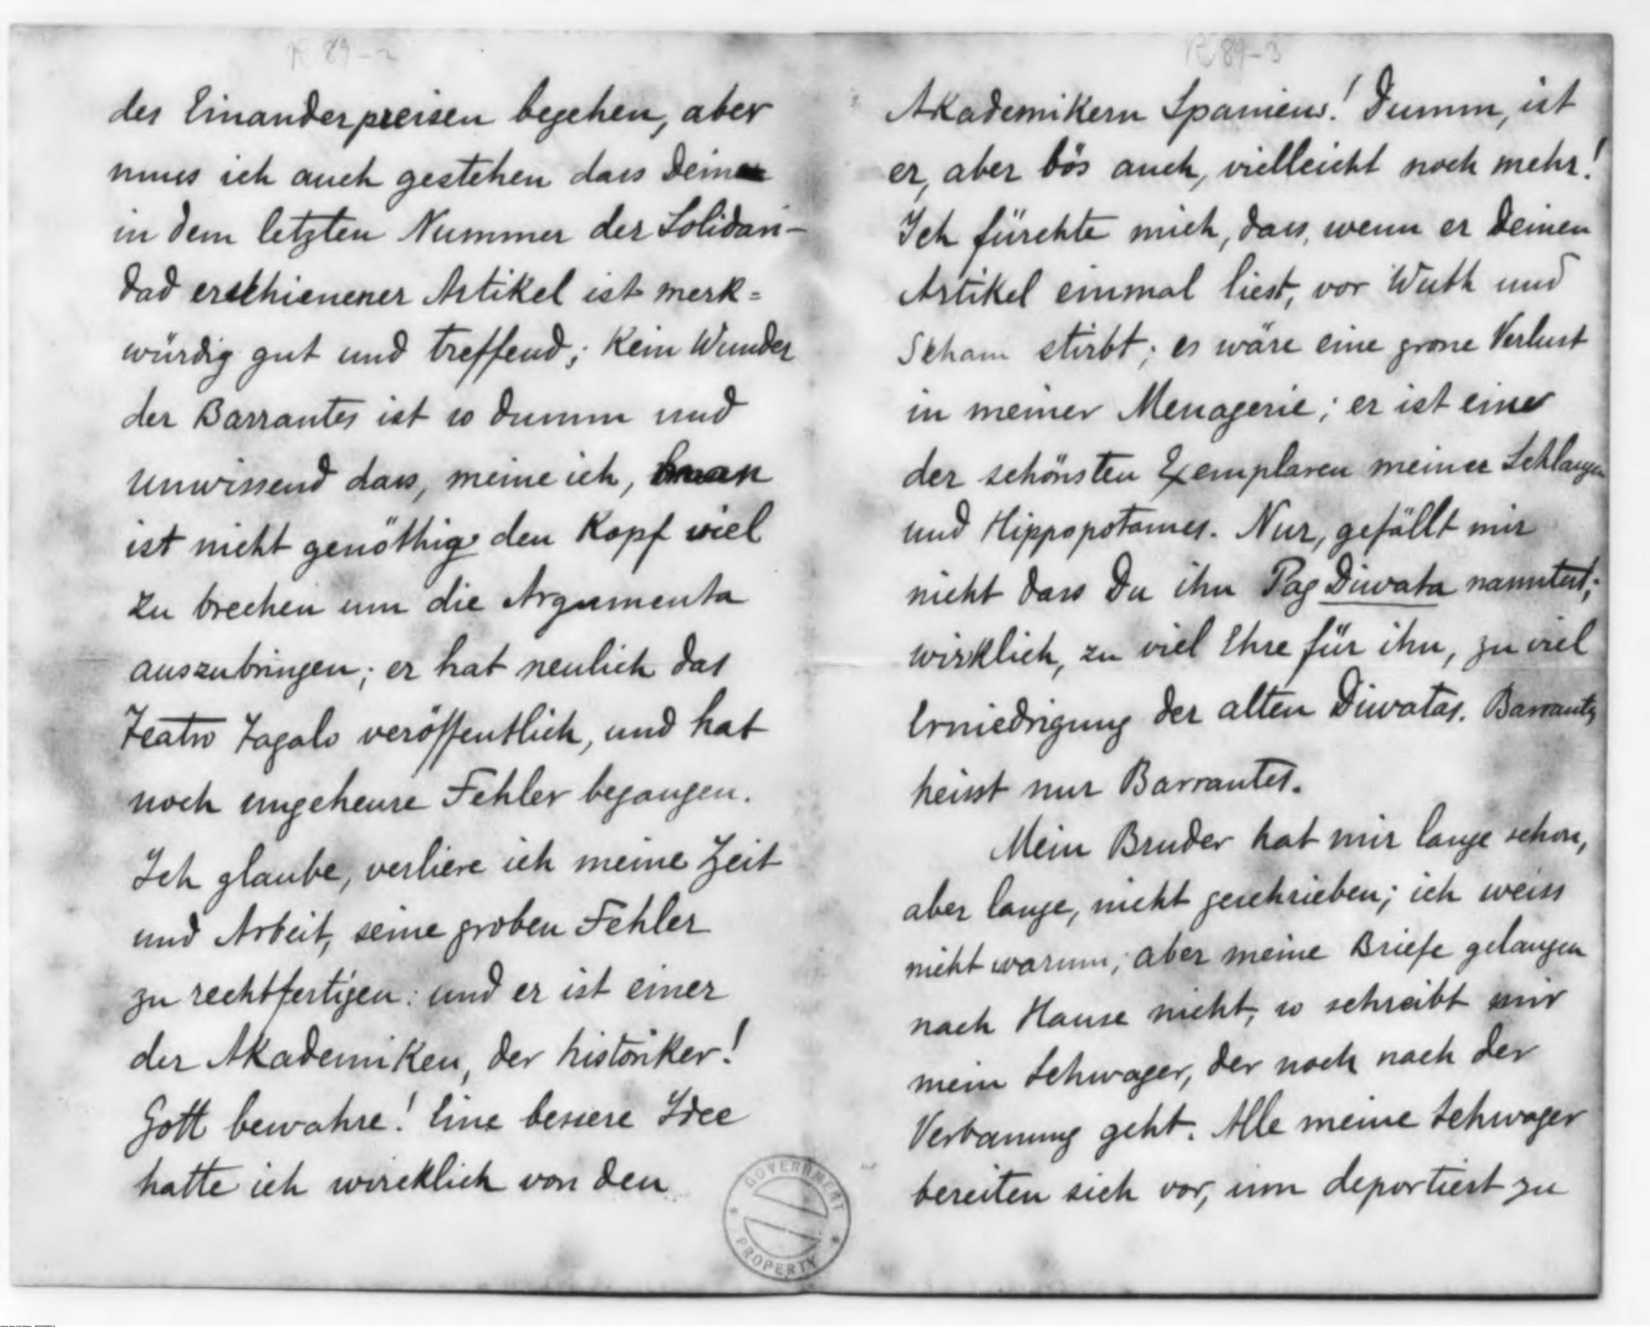 R 89-2
des Einanderpreisen begehen, aber
muss ich auch gestehen dass Deine
in dem letzten Nummer der Solidari-
dad erschienener Artikel ist merk=
würdig gut und treffend; Kein Wunder
der Barrantes ist so dumm und
unwissend dass, meine ich,
ist nicht genöthig den Kopf viel
zu brechen um die Argumenta
auszubringen; er hat neulich das
Teatro Tagalo veröffentlich, und hat
noch ungeheure Fehler begangen.
Ich glaube, verliere ich meine Zeit
und Arbeit, seine groben Fehler
zu rechtfertigen: und er ist einer
der Akademiken, der historiker!
Gott bewahre! Eine bessere Idee
hatte ich wircklich von den
R 89-3
Akademikern Spaniens! Dumm, ist
er, aber bös auch, vielleicht noch mehr!
Ich fürchte mich, dass, wenn er Deinen
Artikel einmal liest, vor Wuth und
Scham stirbt; es wäre eine grosse Verlust
in meiner Menagerie; er ist einer
der schönsten Exemplaren meiner Schlangen
und Hippopotames. Nur, gefällt mir
nicht dass Du ihn Pag Diwata nanntest;
wirklich, zu viel Ehre für ihn, zu viel
Erniedrigung der alten Diwatas. Barrantes
heisst nur Barrantes.
Mein Bruder hat mir lange schon,
aber lange, nicht geschrieben; ich weiss
nicht warum; aber meine Briefe gelangen
nach Hause nicht, so schreibt mir
mein Schwager, der noch nach der
Verbannung geht. Alle meine Schwager
bereiten sich vor, um deportiert zu
GOVERNMENT
PROPERTY